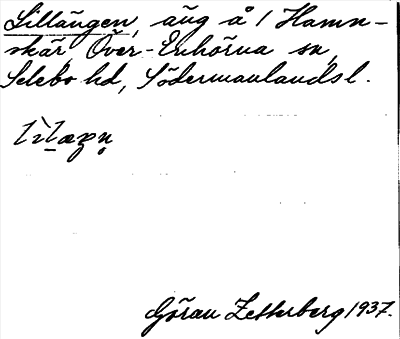 Lilläugen, äng å / Hamn-
skär, Över-Enhörna sn,
Selebo hd, Södermanlands l.
Göran Zetterberg 1937.